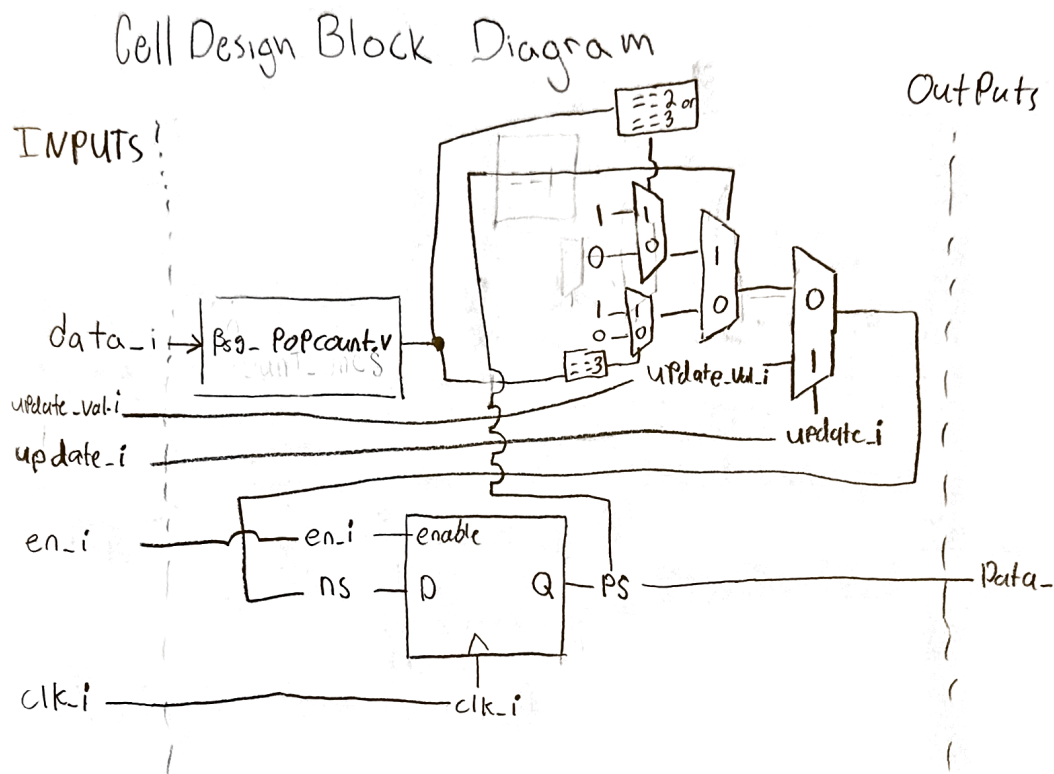 Cell Design Block Diagram
OutPuts
INPUTS!
==2 or
==3
1
1
0
0
1
0
1
1
0
0
0
1
data_i
bsg_popcount.v
==3
update_val_i
update_val_i
update_i
update_i
en_i
en_i
enable
ns
D
Q
PS
Data_
clk_i
clk_i